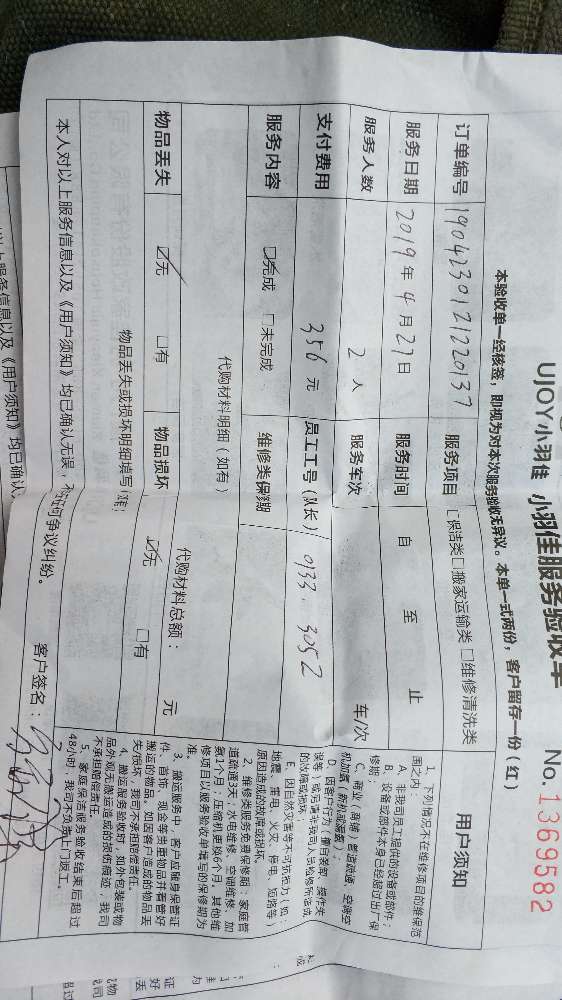 UJOY小羽佳 小羽佳服务验收单 No. 1369582
本验收单一经核签，即视为对本次服务验收无异议。本单一式两份，客户留存一份（红）
订单编号 1904230121220137 服务项目 □保洁类□搬家运输类□维修清洗类
服务日期 2019年4月27日 服务时间 自 至 止
服务人数 2人 服务车次 车/次
支付费用 356元 员工工号（队长） 0133.3052
服务内容 ☑完成 □未完成 维修类保期
代购材料明细（如有）
代购材料总额： 元
物品丢失 ☑无 □有 物品损坏 ☑无 □有
物品丢失或损坏明细填写
本人对以上服务信息以及《用户须知》均已确认无误，无任何争议纠纷。
客户签名：
用户须知
1、下列情况不在维修项目的维保范
围之内：
A、非我司员工提供的设备或部件；
B、设备或部件本身已经超过出厂保
修期；
C、商业（商铺）管道疏通、空调空
D、因客户行为
的故障或损坏；
E、因自然灾害等不可抗拒力（如：
地震、雷电、火灾、停电、短路等）
原因造成的故障或损坏。
2、维修类服务免费保修期：家庭管
道疏通3天；水电维修、空调维修、加
氨1个月；压缩机更换6个月。其他维
修项目以服务验收单填写的保修期为
准。
3、搬运服务中，客户应随身保管证
件、首饰、现金等贵重物品并看管好
搬运的物品。如因客户造成的物品丢
失/损坏，我司不承担赔偿责任。
4、搬运服务验收时，如外包装或物
品外观无搬运造成的损伤痕迹，我司
不承担赔偿责任。
5、家庭保洁服务验收结束后超过
48小时，我司不负责上门返工。
以上服务信息以及《用户须知》均已确认